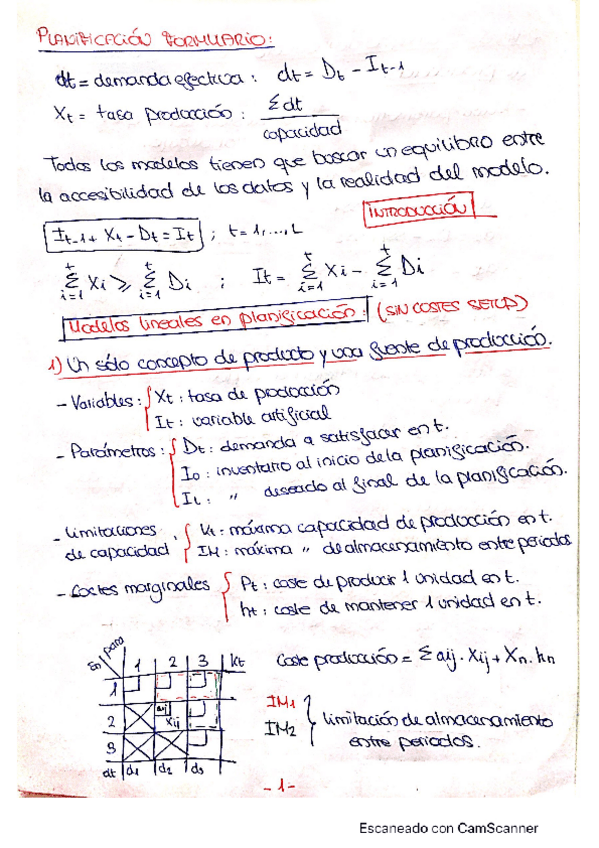 PLANIFICACIÓN FORMULARIO:
dt = demanda efectiva : dt = Dt - It-1
Xt = tasa producción : Σdt / capacidad
Todos los modelos tienen que buscar un equilibrio entre
la accesibilidad de los datos y la realidad del modelo.
INTRODUCCIÓN
It-1 + Xt - Dt = It ; t = 1, ..., L
Σ(i=1, t) Xi ≥ Σ(i=1, t) Di ; It = Σ(i=1, t) Xi - Σ(i=1, t) Di
Modelos lineales en planificación: (SIN COSTES SETUP)
1) Un sólo concepto de producto y una fuente de producción.
- Variables: { Xt : tasa de producción
It : variable artificial
- Parámetros: { Dt : demanda a satisfacer en t.
I0 : inventario al inicio de la planificación.
IL : " deseado al final de la planificación.
- Limitaciones de capacidad : { Kt : máxima capacidad de producción en t.
IM : máxima " de almacenamiento entre periodos
- Costes marginales { Pt : coste de producir 1 unidad en t.
ht : coste de mantener 1 unidad en t.
En para 1 2 3 kt
1
2 aij Xij
3
dt d1 d2 d3
Coste producción = Σ aij · Xij + Xn · hn
IM1
IM2 } limitación de almacenamiento
entre periodos.
- 1 -
Escaneado con CamScanner